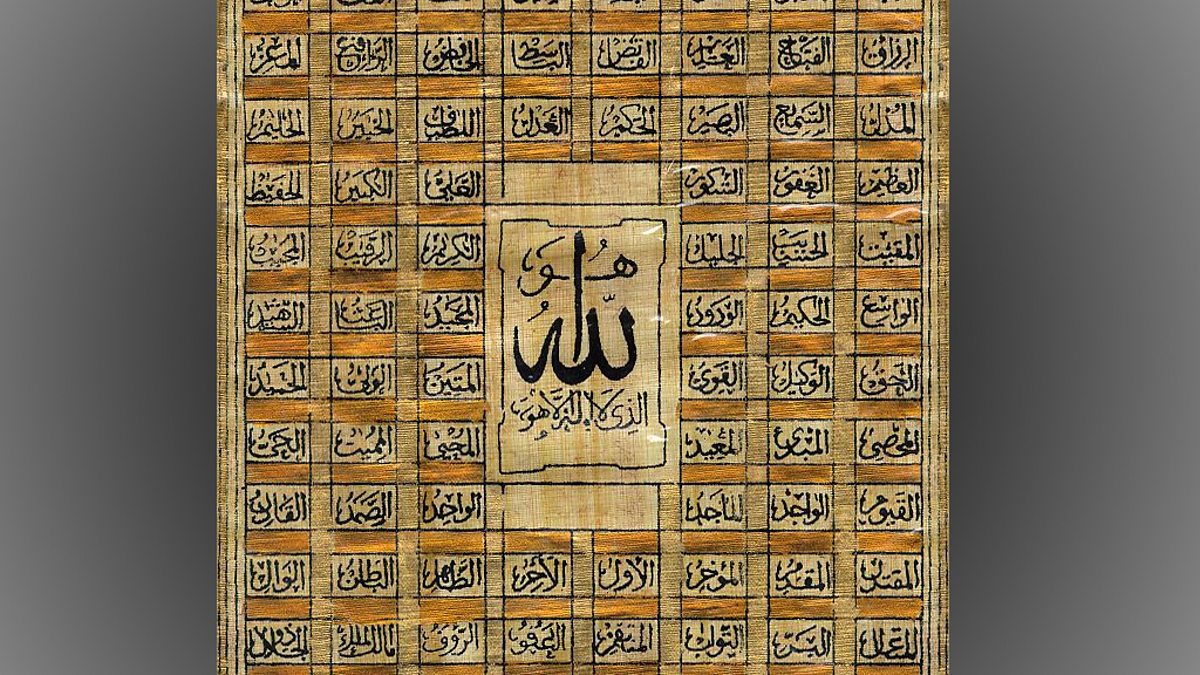 الرزاق الفتاح العليم القابض الباسط الخافض الرافع المعز
المذل السميع البصير الحكم العدل اللطيف الخبير الحليم
العظيم الغفور الشكور العلي الكبير الحفيظ
المقيت الحسيب الجليل الكريم الرقيب المجيب
الواسع الحكيم الودود المجيد الباعث الشهيد
الحق الوكيل القوي المتين الولي الحميد
المحصي المبدئ المعيد المحيي المميت الحي
القيوم الواجد الماجد الواحد الصمد القادر
المقتدر المقدم المؤخر الأول الآخر الظاهر الباطن الوالي
المتعال البر التواب المنتقم العفو الرؤوف مالك الملك ذو الجلال
هو
الله
الذي لا اله الا هو